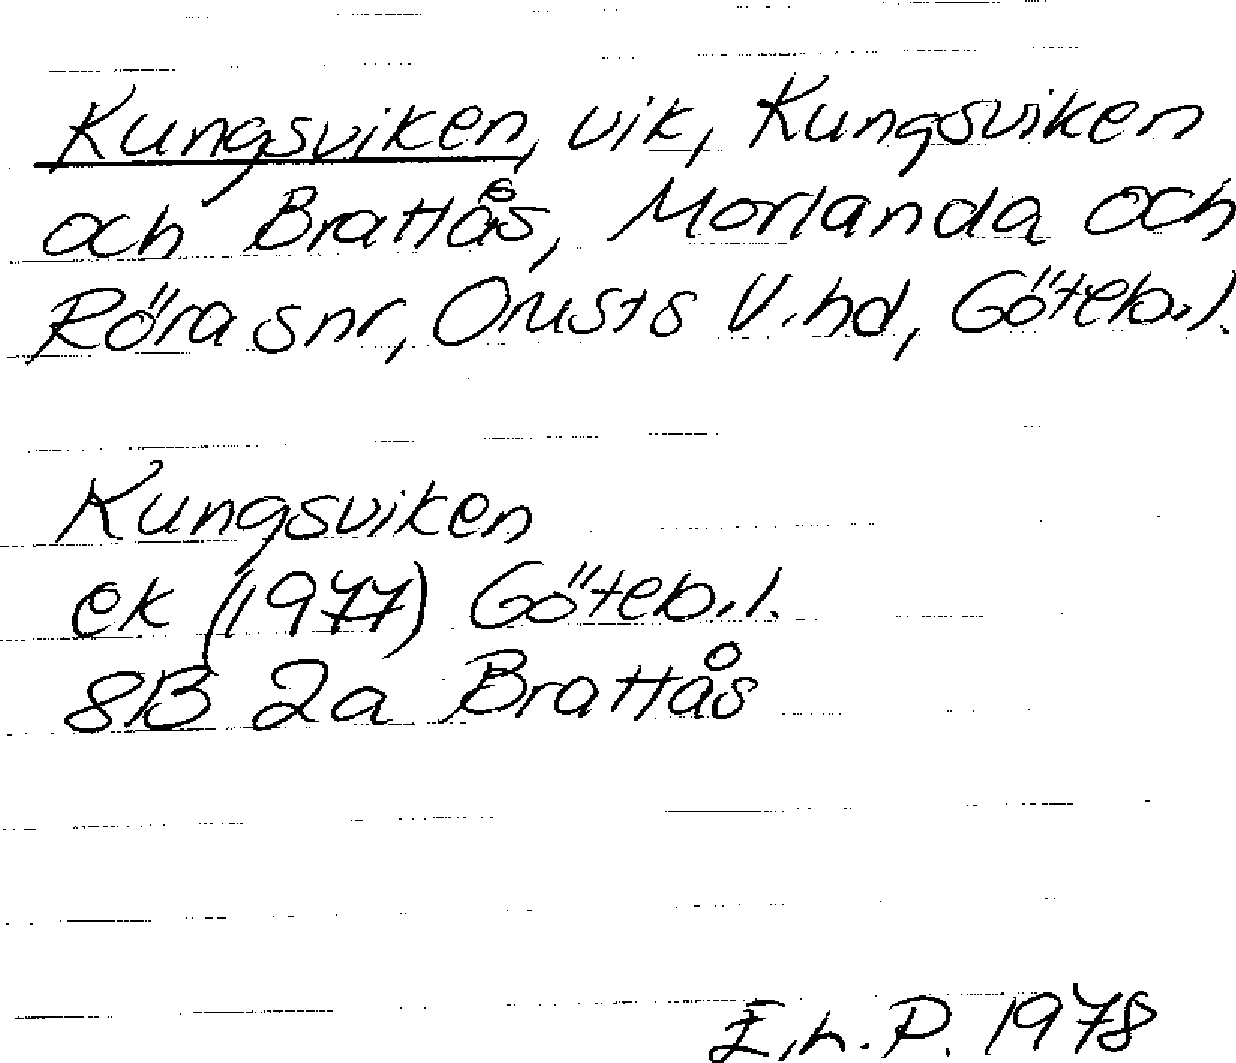 Kungsviken, vik, Kungsviken
och Brattås, Morlanda och
Röra snr, Orusts V.hd, Göteb.l.
Kungsviken
ek (1977) Göteb.l.
8B 2a Brattås
E.h.P. 1978